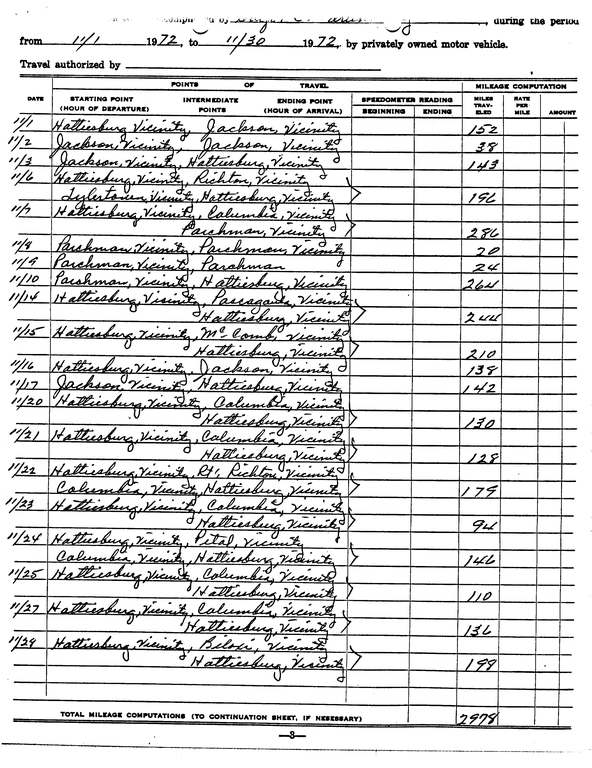 during the period
from 11/1 1972, to 11/30 1972, by privately owned motor vehicle.
Travel authorized by
POINTS OF TRAVEL MILEAGE COMPUTATION
DATE STARTING POINT (HOUR OF DEPARTURE) INTERMEDIATE POINTS ENDING POINT (HOUR OF ARRIVAL) SPEEDOMETER READING BEGINNING ENDING MILES TRAVELED RATE PER MILE AMOUNT
11/1 Hattiesburg Vicinity, Jackson, Vicinity 152
11/2 Jackson, Vicinity, Jackson, Vicinity 38
11/3 Jackson, Vicinity, Hattiesburg, Vicinity 143
11/6 Hattiesburg, Vicinity, Richton, Vicinity
Tylertown, Vicinity, Hattiesburg, Vicinity 196
11/7 Hattiesburg, Vicinity, Columbia, Vicinity
Parchman, Vicinity 286
11/8 Parchman, Vicinity, Parchman, Vicinity 20
11/9 Parchman, Vicinity, Parchman 24
11/10 Parchman, Vicinity, Hattiesburg, Vicinity 264
11/14 Hattiesburg, Vicinity, Pascagoula, Vicinity
Hattiesburg, Vicinity 244
11/15 Hattiesburg, Vicinity, McComb, Vicinity
Hattiesburg, Vicinity 210
11/16 Hattiesburg, Vicinity, Jackson, Vicinity 138
11/17 Jackson, Vicinity, Hattiesburg, Vicinity 142
11/20 Hattiesburg, Vicinity, Columbia, Vicinity
Hattiesburg, Vicinity 130
11/21 Hattiesburg, Vicinity, Columbia, Vicinity
Hattiesburg, Vicinity 128
11/22 Hattiesburg, Vicinity, Rt, Richton, Vicinity
Columbia, Vicinity, Hattiesburg, Vicinity 179
11/23 Hattiesburg, Vicinity, Columbia, Vicinity
Hattiesburg, Vicinity 94
11/24 Hattiesburg, Vicinity, Petal, Vicinity
Columbia, Vicinity, Hattiesburg, Vicinity 146
11/25 Hattiesburg, Vicinity, Columbia, Vicinity
Hattiesburg, Vicinity 110
11/27 Hattiesburg, Vicinity, Columbia, Vicinity
Hattiesburg, Vicinity 136
11/29 Hattiesburg, Vicinity, Biloxi, Vicinity
Hattiesburg, Vicinity 198
TOTAL MILEAGE COMPUTATIONS (TO CONTINUATION SHEET, IF NESSESARY) 2978
—3—